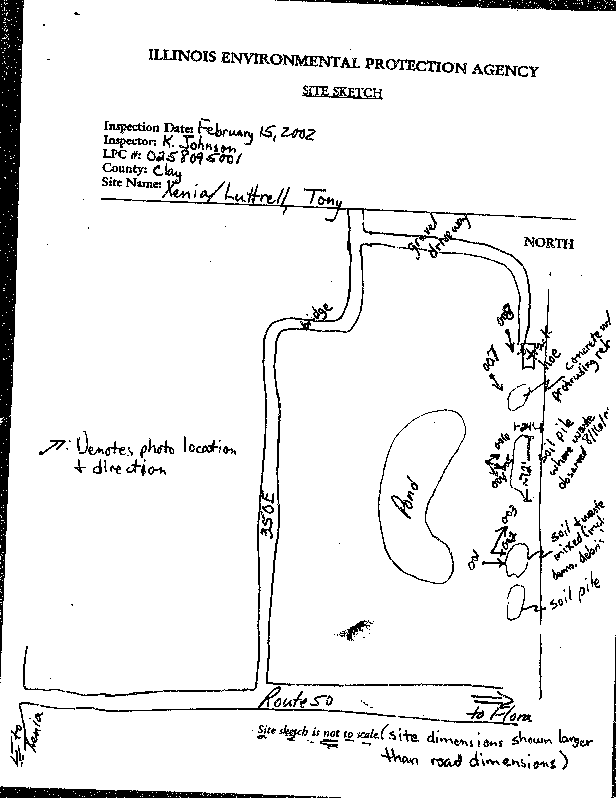 ILLINOIS ENVIRONMENTAL PROTECTION AGENCY
SITE SKETCH
Inspection Date: February 15, 2002
Inspector: K. Johnson
LPC #: 0258095001
County: Clay
Site Name: Xenia/Luttrell, Tony
gravel
driveway
NORTH
bridge
008
007
track
hoe
concrete w/
protruding
: Denotes photo location
+ direction
006
soil pile
where waste
observed
Pond
350E
003
002
001
soil & waste
mixed
soil pile
Route 50
to Flora
to
Xenia
Site sketch is not to scale (site dimensions shown larger
than road dimensions)